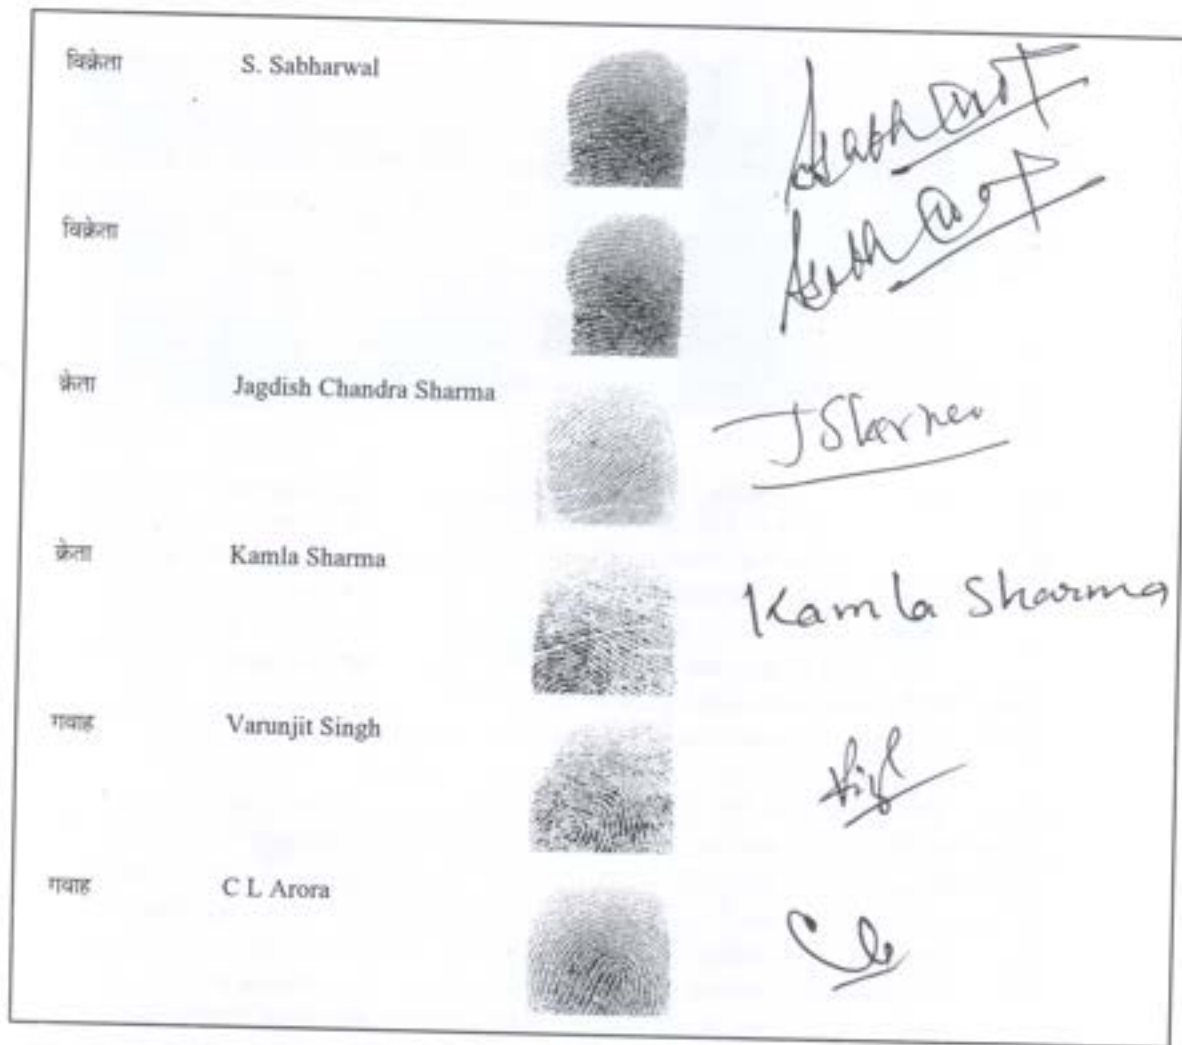 विक्रेता S. Sabharwal
विक्रेता
क्रेता Jagdish Chandra Sharma JSharma
क्रेता Kamla Sharma Kamla Sharma
गवाह Varunjit Singh
गवाह C L Arora